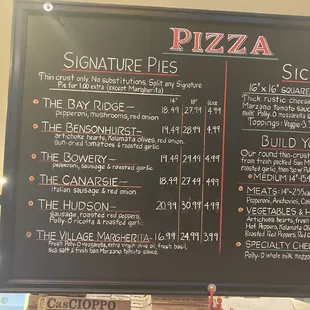 PIZZA
SIGNATURE PIES
Thin crust only. No substitutions. Split any Signature
Pie for 1.00 extra (except Margherita)
14" 18" SLICE
THE BAY RIDGE- 18.49 27.99 4.99
pepperoni, mushrooms, red onion
THE BENSONHURST- 19.49 28.99 4.99
artichoke hearts, Kalamata olives, red onion,
sun-dried tomatoes & roasted garlic
THE BOWERY- 19.49 29.49 4.99
pepperoni, sausage, roasted garlic
THE CANARSIE- 18.49 27.49 4.99
italian sausage & red onion
THE HUDSON- 20.99 30.99 4.99
sausage, roasted red peppers,
Polly-O ricotta & roasted garlic
THE VILLAGE MARGHERITA- 16.99 24.99 3.99
Fresh Polly-O mozzarella, extra virgin olive oil, fresh basil,
sea salt & fresh San Marzano tomato sauce
SIC
16" x 16" SQUARE
Thick rustic cheese
Marzano Tomato Sauc
milk Polly-O mozzarella
Toppings: Veggie-3
BUILD YO
Our round thin-crust
from fresh packed San M
chopped garlic, roma
MEDIUM 14"
MEATS: 14"
Pepperoni, Anchovies,
VEGETABLES & H
Artichoke Hearts, fresh
Hot Peppers, Kalamata O
Roasted Red Peppers, Red O
SPECIALTY CHEE
Polly-O whole milk mozz
CasCIOPPO